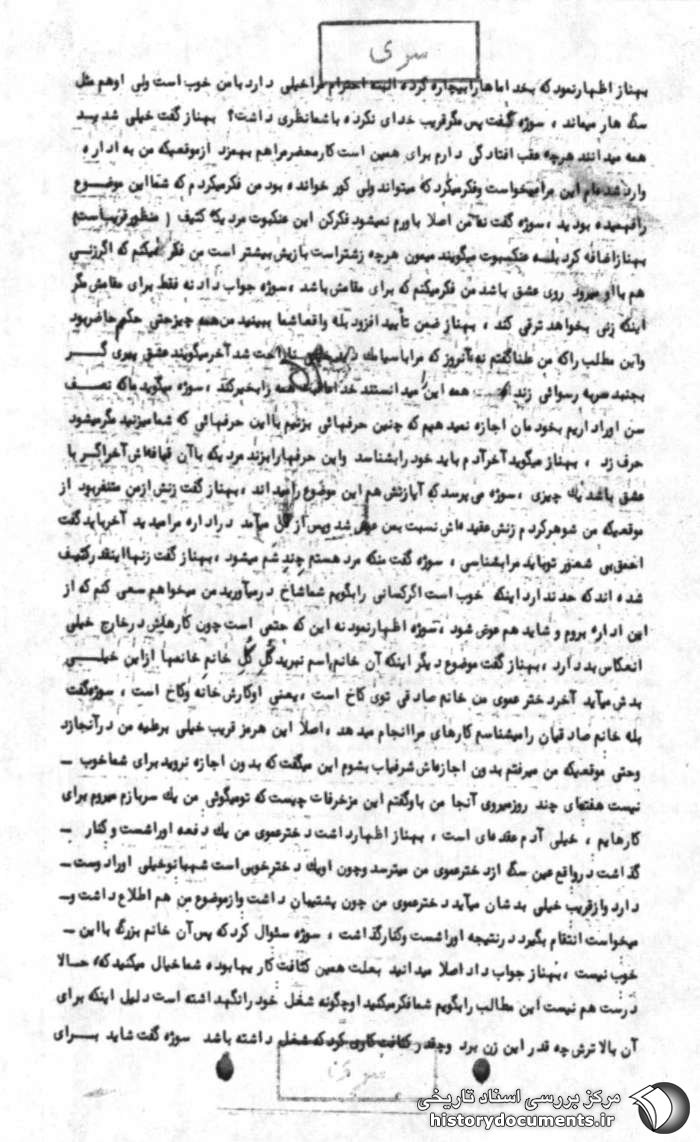 سری
بهناز اظهار نمود که بخدا ماها را بیچاره کرده البته احترام مرا خیلی دارد با من خوب است ولی او هم مثل
سگ هار میماند ، سوژه گفت پس مگر قریب خدای نکرده با شما نظری داشت؟ بهناز گفت خیلی شدید
همه میدانند هرچه عقب افتادگی دارم برای همین است کار محضر مرا هم بهمزد از موقعیکه من به اداره
وارد شده‌ام این مرا میخواست و فکر میکرد که میتواند ولی کور خوانده بود من فکر میکردم که شما این موضوع
را فهمیده بودید ، سوژه گفت نه من اصلا باورم نمیشود فکر کن این عنکبوت مردیکه کثیف ( منظور قریب است )
بهناز اضافه کرد بله عنکبوت میگویند میمون هرچه زشتتر است بازیش بیشتر است من فکر نمیکنم که اگر زنی
هم با او میرود روی عشق باشد من فکر میکنم که برای مقامش باشد ، سوژه جواب داد نه فقط برای مقامش مگر
اینکه زنی بخواهد ترقی کند ، بهناز ضمن تأیید افزود بله واقعا شما ببینید من همه چیز حتی حکم حاضر بود
واین مطلب را که من علنا گفتم نه آنروز که مرا با سیامک دید خیلی ناراحت شد آخر میگویند عشق پیری گر
بجنبد سر به رسوائی زند همه این را میدانستند خدا همه را بخیر کند ، سوژه میگوید ما که نصف
سن او را داریم بخودمان اجازه نمیدهیم که چنین حرفهائی بزنیم با این حرفهائی که شما میزنید مگر میشود
حرف زد ، بهناز میگوید آخر آدم باید خود را بشناسد واین حرفها را بزند مردیکه با آن قیافه‌اش آخر اگر با
عشق باشد یک چیزی ، سوژه می پرسد که آیا زنش هم این موضوع را میداند ، بهناز گفت زنش از من متنفر بود از
موقعیکه من شوهر کردم زنش عقیده‌اش نسبت بمن عوض شد وپس از آن میآمد در اداره مرا میدید آخر باید گفت
احمق بی شعور تو باید مرا بشناسی ، سوژه گفت منکه مرد هستم چندشم میشود ، بهناز گفت زنها اینقدر کثیف
شده اند که حد ندارد اینکه خوب است اگر کسانی را بگویم شما شاخ در میآورید من میخواهم سعی کنم که از
این اداره بروم و شاید هم عوض شود ، سوژه اظهار نمود نه این که حتمی است چون کارهایش در خارج خیلی
انعکاس بد دارد ، بهناز گفت موضوع دیگر اینکه آن خانم را اسم نبرید گل گل خانم خانمها از این خیلی
بدش میآید آخر دختر عموی من خانم صادقی توی کاخ است ، یعنی او کارش خانه و کاخ است ، سوژه گفت
بله خانم صادقیان را میشناسم کارهای مرا انجام میدهد ، اصلا این هرمز قریب خیلی برعلیه من در آنجا زد
وحتی موقعیکه من میرفتم بدون اجازه‌اش شرفیاب بشوم این میگفت که بدون اجازه نروید برای شما خوب -
نیست هفته‌ای چند روز میروی آنجا من باو گفتم این مزخرفات چیست که تو میگوئی من یک سربازم میروم برای
کارهایم ، خیلی آدم عقده‌ای است ، بهناز اظهار داشت دختر عموی من یک دفعه او را شست و کنار -
گذاشت در واقع عین سگ از دختر عموی من میترسد وچون او یک دختر خوبی است شهبانو خیلی او را دوست -
دارد واز قریب خیلی بدشان میآید دختر عموی من چون پشتیبان داشت واز موضوع من هم اطلاع داشت و-
میخواست انتقام بگیرد در نتیجه او را شست وکنار گذاشت ، سوژه سئوال کرد که پس آن خانم بزرگ با این -
خوب نیست ، بهناز جواب داد اصلا میدانید بعلت همین کثافت کاریها بوده شما خیال میکنید که حالا
درست هم نیست این مطالب را بگویم شما فکر میکنید او چگونه شغل خود را نگهداشته است دلیل اینکه برای
آن بالاترش چه قدر این زن برد وچقدر کثافت کاری کرد که شغلم داشته باشد سوژه گفت شاید برای
سری
مرکز بررسی اسناد تاریخی
historydocuments.ir